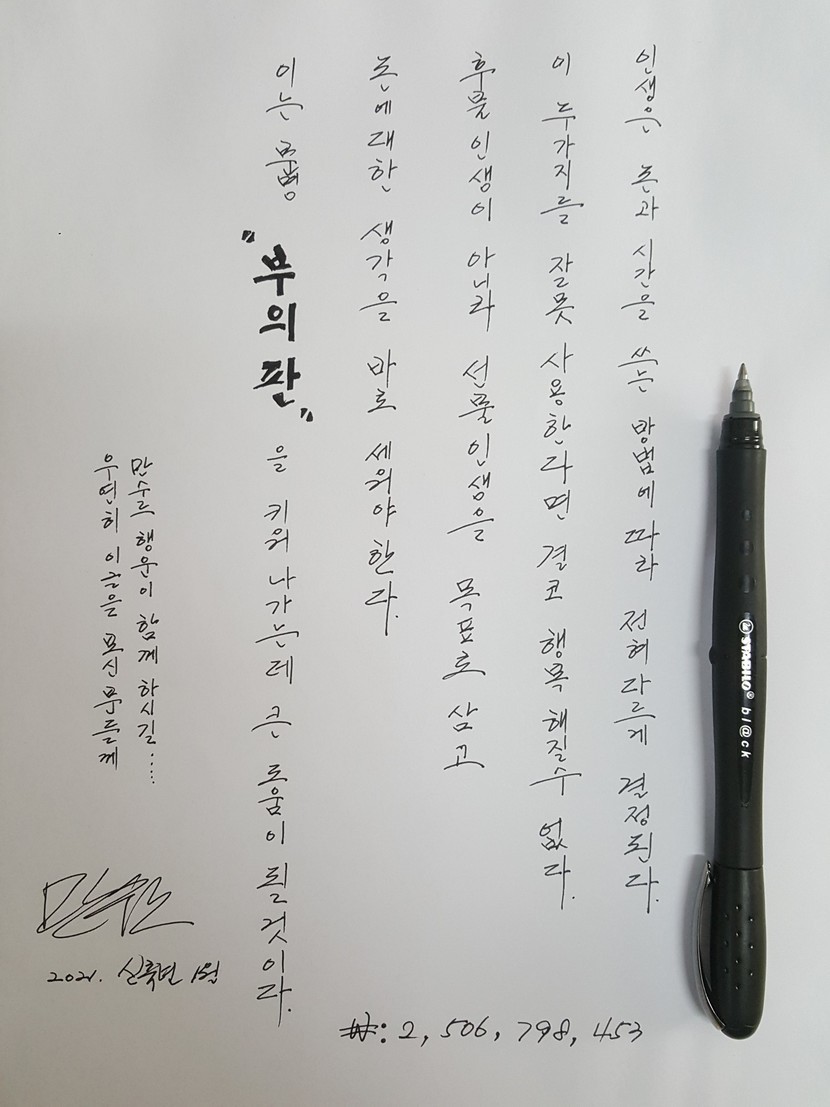 인생은 돈과 시간을 쓰는 방법에 따라 전혀 다르게 결정된다.
이 두가지를 잘못 사용한다면 결코 행복해질수 없다.
후불인생이 아니라 선불인생을 목표로 삼고
돈에대한 생각을 바로 세워야한다.
이는 분명 "부의 판" 을 키워 나가는데 큰 도움이 될것이다.
만수르 행운이 함께 하시길.....
우연히 이글을 보신 분들께
2021. 신축년 1월
₩: 2,506,798,453
STABILO® bl@ck